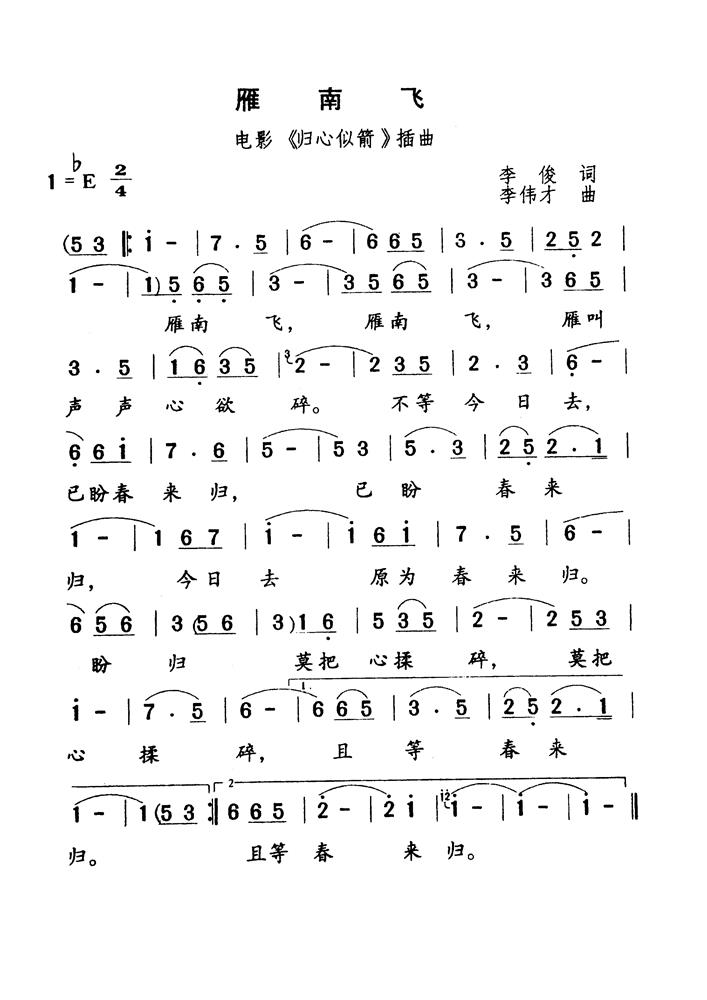 雁 南 飞
电影《归心似箭》插曲
1=♭E 2/4
李 俊 词
李伟才 曲
(5 3 ‖: i - | 7 . 5 | 6 - | 6 6 5 | 3 . 5 | 2 5 2 |
1 - | 1) 5 6 5 | 3 - | 3 5 6 5 | 3 - | 3 6 5 |
雁南 飞， 雁南 飞， 雁叫
3 . 5 | 1 6 3 5 | 3 2 - | 2 3 5 | 2 . 3 | 6 - |
声 声 心 欲 碎。 不等 今 日 去，
6 6 i | 7 . 6 | 5 - | 5 3 | 5 . 3 | 2 5 2 . 1 |
已盼春 来 归， 已 盼 春 来
1 - | 1 6 7 | i - | i 6 i | 7 . 5 | 6 - |
归， 今日 去 原为 春 来 归。
6 5 6 | 3 (5 6 | 3) 1 6 | 5 3 5 | 2 - | 2 5 3 |
盼 归 莫把 心揉 碎， 莫把
1.
i - | 7 . 5 | 6 - | 6 6 5 | 3 . 5 | 2 5 2 . 1 |
心 揉 碎， 且 等 春 来
2
1 - | 1 (5 3 :‖ 6 6 5 | 2 - | 2 i | i2 i - | i - | i - ‖
归。 且等 春 来 归。